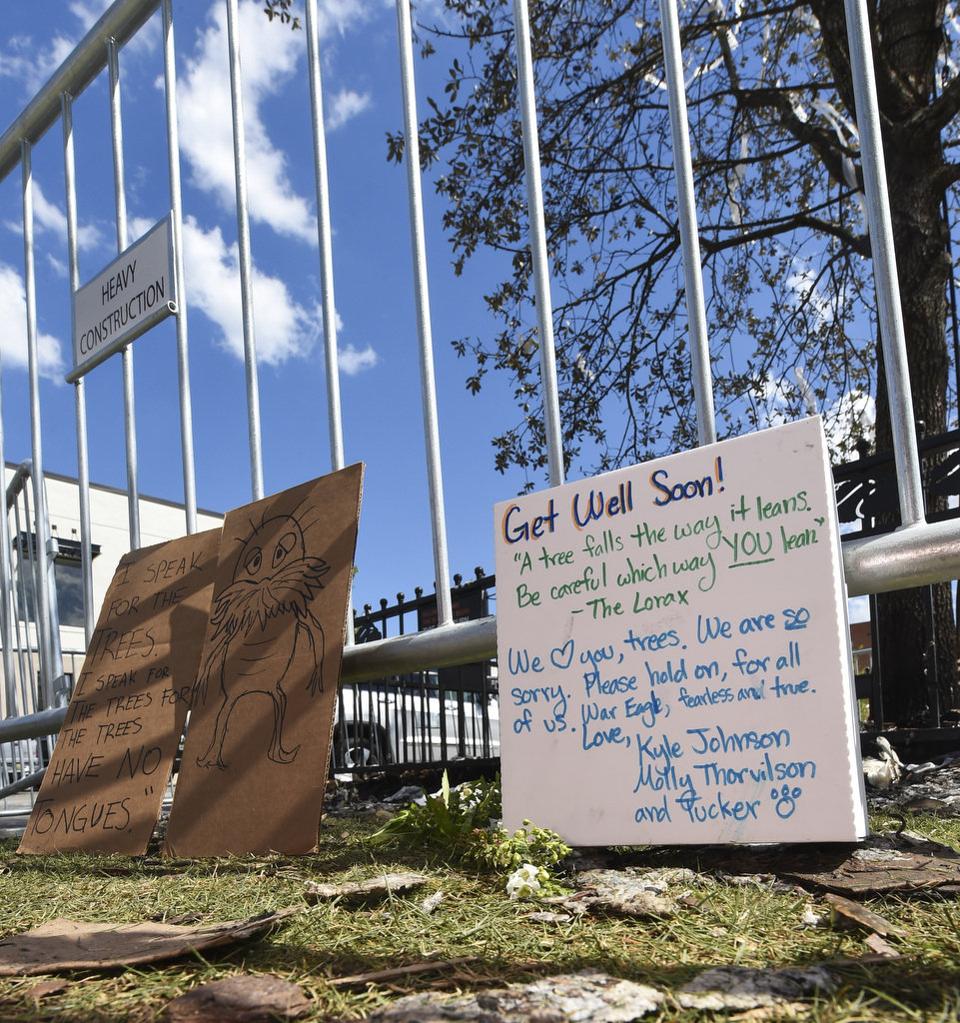 HEAVY
CONSTRUCTION
I SPEAK
FOR THE
TREES.
I SPEAK FOR
THE TREES FOR
THE TREES
HAVE NO
TONGUES."
Get Well Soon!
"A tree falls the way it leans.
Be careful which way YOU lean"
-The Lorax
We ♡ you, trees. We are so
sorry. Please hold on, for all
of us. War Eagle, fearless and true.
Love,
Kyle Johnson
Molly Thorvilson
and Tucker